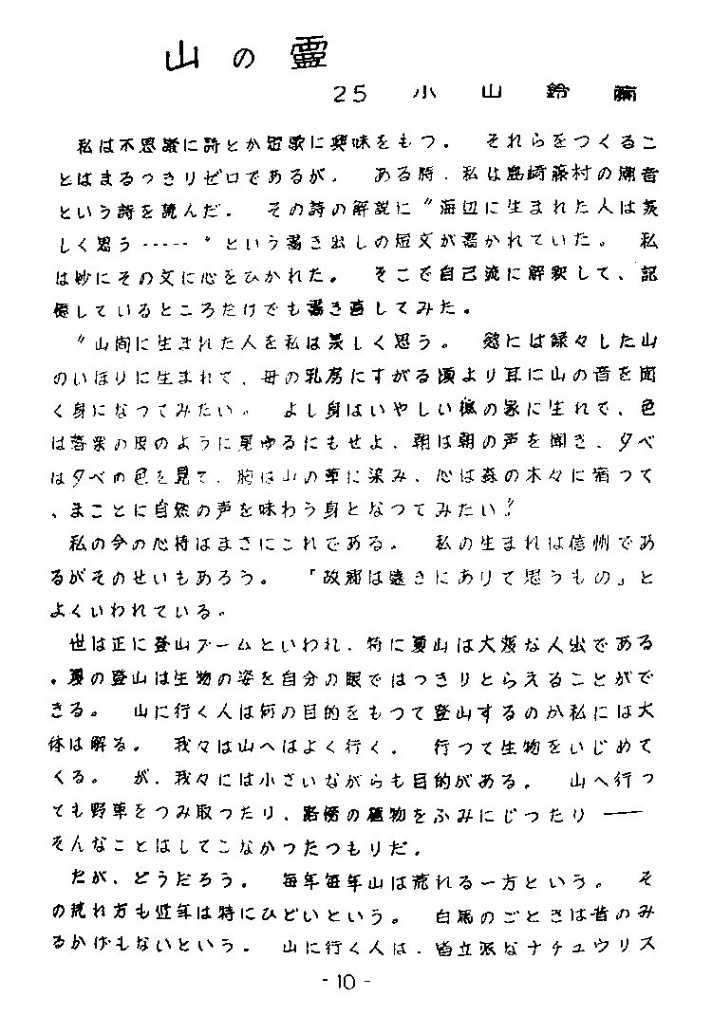 山の霊
25 小山鈴
私は不思議に詩とか短歌に興味をもつ。 それらをつくるこ
とはまるつきりゼロであるが。 ある時、私は島崎藤村の潮音
という詩を読んだ。 その詩の解説に〝海辺に生まれた人は羨
しく思う……〟という書き出しの短文が書かれていた。 私
は妙にその文に心をひかれた。 そこで自己流に解釈して、記
憶しているところだけでも書き直してみた。
〝山間に生まれた人を私は羨しく思う。 慾には緑々した山
のいほりに生まれて、母の乳房にすがる頃より耳に山の音を聞
く身になつてみたい。 よし身はいやしい樵の家に生れて、色
は落葉の皮のように見ゆるにもせよ、朝は朝の声を聞き、夕べ
は夕べの色を見て、胸は山の草に染み、心は森の木々に宿つて
、まことに自然の声を味わう身となつてみたい〟
私の今の心持はまさにこれである。 私の生まれは信州であ
るがそのせいもあろう。 「故郷は遠きにありて思うもの」と
よくいわれている。
世は正に登山ブームといわれ、特に夏山は大変な人出である
。夏の登山は生物の姿を自分の眼ではつきりとらえることがで
きる。 山に行く人は何の目的をもつて登山するのか私には大
体は解る。 我々は山へはよく行く。 行つて生物をいじめて
くる。 が、我々には小さいながらも目的がある。 山へ行つ
ても野草をつみ取つたり、路傍の植物をふみにじつたり――
そんなことはしてこなかつたつもりだ。
だが、どうだろう。 毎年毎年山は荒れる一方という。 そ
の荒れ方も近年は特にひどいという。 白馬のごときは昔のみ
るかげもないという。 山に行く人は、皆立派なナチュウリス
- 10 -